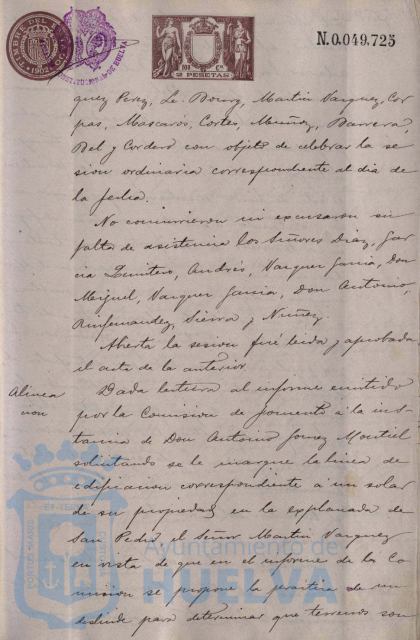 TIMBRE DEL ESTADO
1902
HUELVA
2 PESETAS
N.0.049.725
quez Perez, Le Bourg, Martin Vazquez, Cor
pas, Mascarós, Cortés, Muñoz, Barrera,
Bel y Cordero con objeto de celebrar la se
sion ordinaria correspondiente al dia de
la fecha.
No concurrieron ni excusaron su
falta de asistencia los Señores Diaz, Gar
cia Quintero, Andrés, Vazquez Garcia, Don
Miguel, Vazquez Garcia, Don Antonio,
Rinfernandez, Sierra y Nuñez.
Abierta la sesion fué leida y aprobada
el acta de la anterior.
Alinea
cion
Dada lectura al informe emitido
por la Comision de fomento á la ins-
tancia de Don Antonio Gomez Montiel
solicitando se le marque la linea de
edificacion correspondiente á un solar
de su propiedad en la explanada de
San Pedro, el Señor Martin Vazquez
en vista de que en el informe de la Co
mision se propone la práctica de un
deslinde para determinar que terrenos son
Ayuntamiento de
HUELVA